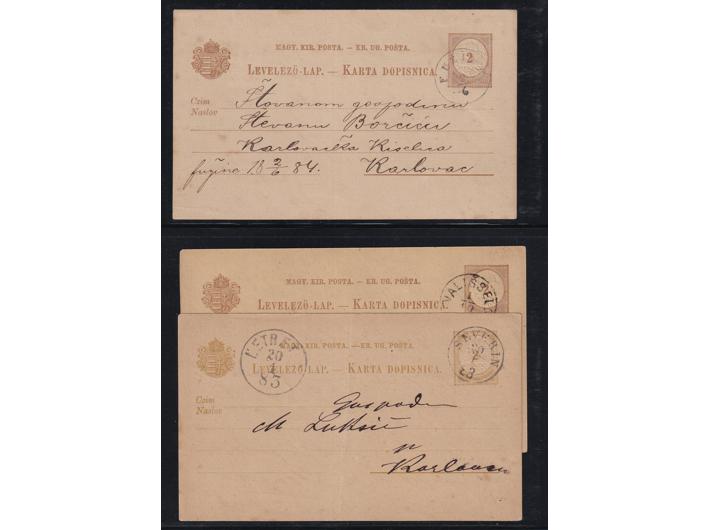 MAGY. KIR. POSTA. — KR. UG. POŠTA.
LEVELEZŐ-LAP. — KARTA DOPISNICA.
12
6
Czim
Naslov
Štovanom gospodinu
Stevanu Borčiću
Karlovačka Kiselica
fužine 18 2/6 84.
Karlovac
MAGY. KIR. POSTA. — KR. UG. POŠTA.
LEVELEZŐ-LAP. — KARTA DOPISNICA.
MAGY. KIR. POSTA. — KR. UG. POŠTA.
LEVELEZŐ-LAP. — KARTA DOPISNICA.
20
83
SEVERIN
83
Czim
Naslov
Gospodin
M Lukšić
u
Karlovcu